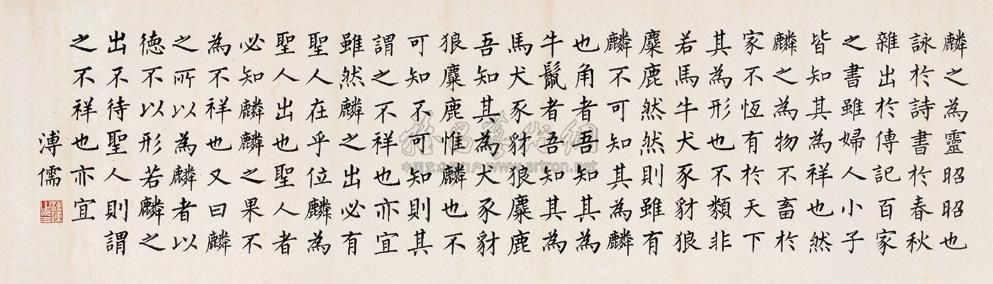 麟之為靈昭昭也
詠於詩書於春秋
雜出於傳記百家
之書雖婦人小子
皆知其為祥也然
麟之為物不畜於
家不恆有於天下
其為形也不類非
若馬牛犬豕豺狼
麋鹿然然則雖有
麟不可知其為麟
也角者吾知其為
牛鬣者吾知其為
馬犬豕豺狼麋鹿
吾知其為犬豕豺
狼麋鹿惟麟也不
可知不可知則其
謂之不祥也亦宜
雖然麟之出必有
聖人在乎位麟為
聖人出也聖人者
必知麟麟之果不
為不祥也又曰麟
之所以為麟者以
德不以形若麟之
出不待聖人則謂
之不祥也亦宜
溥儒
artron.net